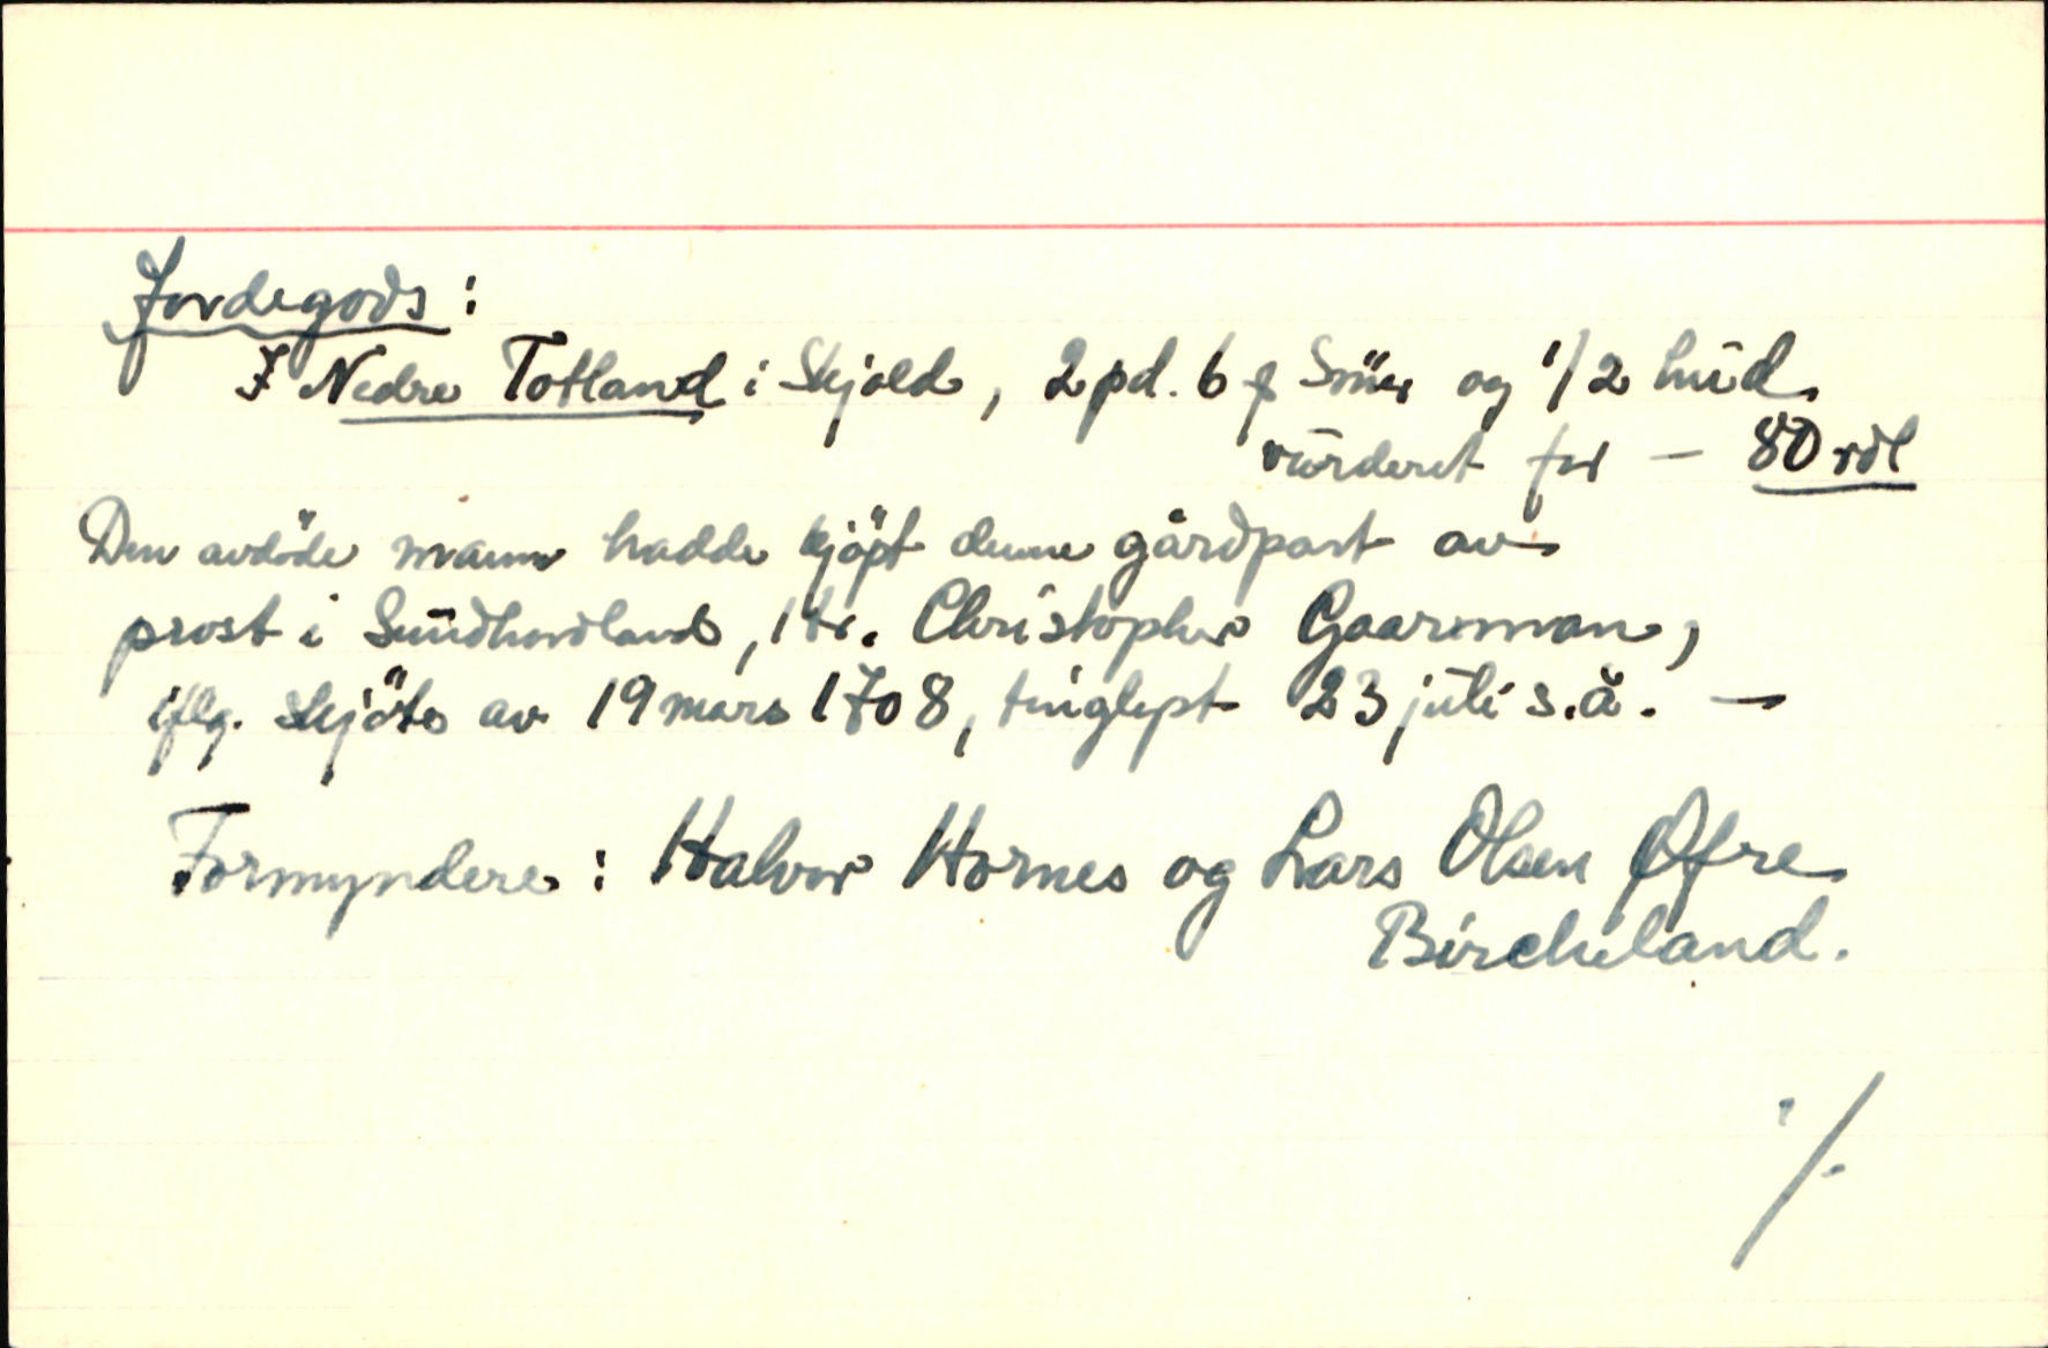 Jordegods:
I Nedre Totland i Skjold, 2 pd. 6 Smör og 1/2 hud,
vurderet for - 80 rdl
Den avdöde mann hadde kjöpt denne gårdpart av
prost i Sundhordland, Hr. Christopher Gaarmann,
iflg. skjöte av 19 mars 1708, tinglyst 23 juli s.å. -
Formyndere: Halvor Hornes og Lars Olsen Øfre
Bircheland.